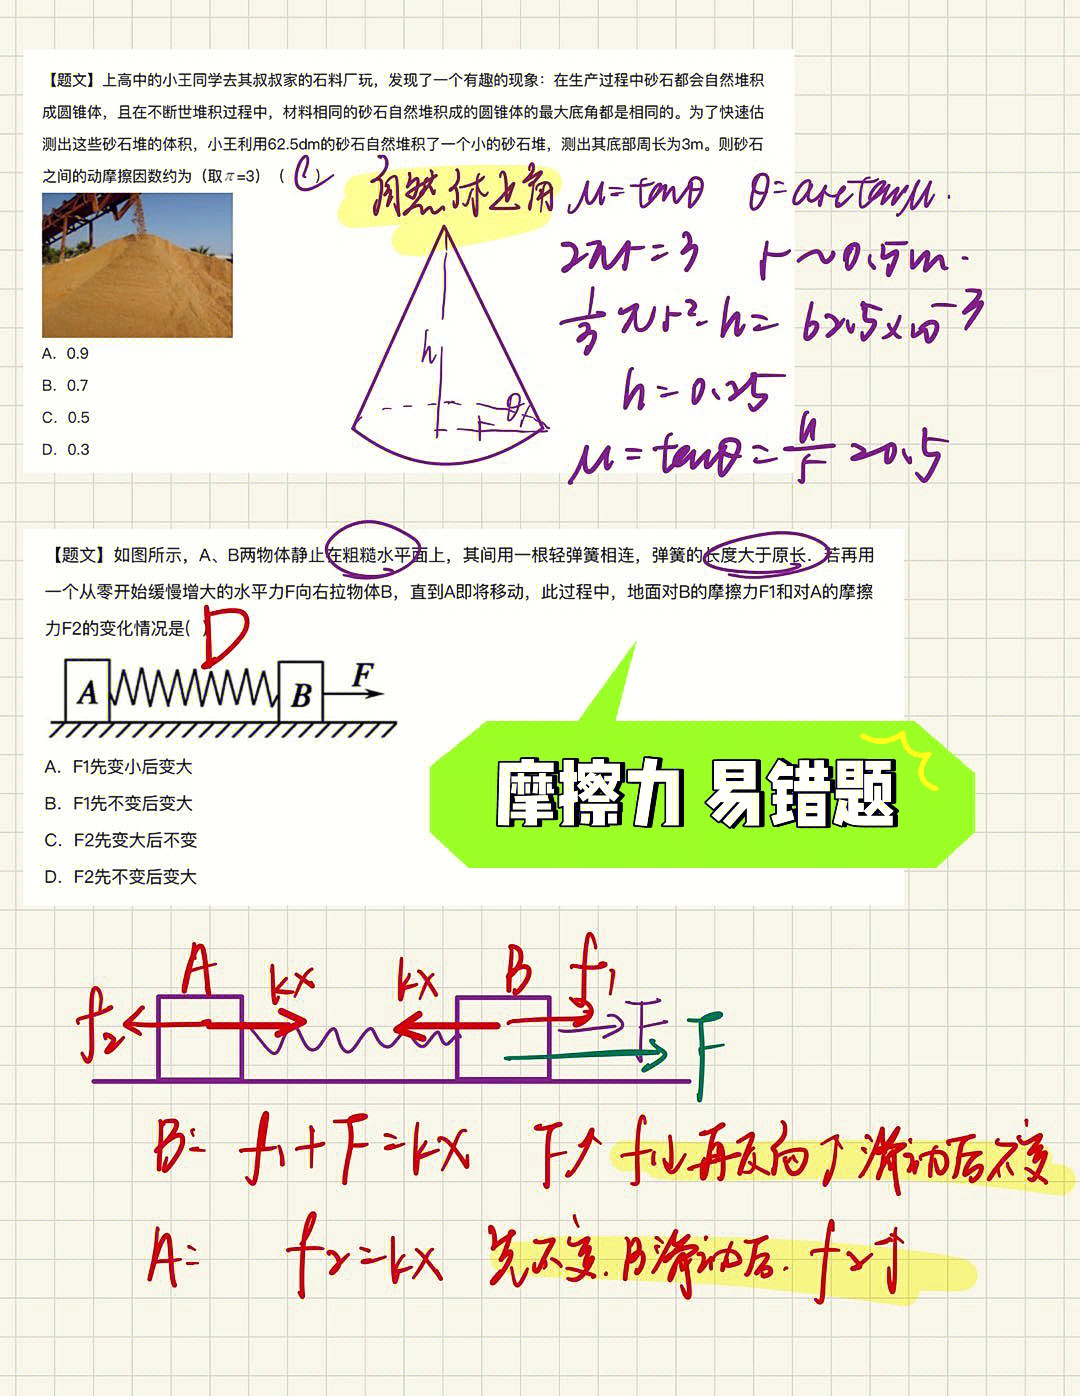 【题文】上高中的小王同学去其叔叔家的石料厂玩，发现了一个有趣的现象：在生产过程中砂石都会自然堆积
成圆锥体，且在不断世堆积过程中，材料相同的砂石自然堆积成的圆锥体的最大底角都是相同的。为了快速估
测出这些砂石堆的体积，小王利用62.5dm的砂石自然堆积了一个小的砂石堆，测出其底部周长为3m。则砂石
之间的动摩擦因数约为（取π=3）（ C ）
自然休止角 μ=tanθ θ=arctanμ.
2πr=3 r~0.5m.
1/3 πr²·h= 62.5×10⁻³
h=0.25
μ=tanθ=h/r=0.5
h
θ
r
A. 0.9
B. 0.7
C. 0.5
D. 0.3
【题文】如图所示，A、B两物体静止在粗糙水平面上，其间用一根轻弹簧相连，弹簧的长度大于原长．若再用
一个从零开始缓慢增大的水平力F向右拉物体B，直到A即将移动，此过程中，地面对B的摩擦力F1和对A的摩擦
力F2的变化情况是( D )
A B F
A. F1先变小后变大
B. F1先不变后变大
C. F2先变大后不变
D. F2先不变后变大
摩擦力 易错题
A kx kx B f₁
f₂ F F
B: f₁+F=kx F↑ f₁↓再反向↑滑动后不变
A: f₂=kx 先不变.B滑动后.f₂↑